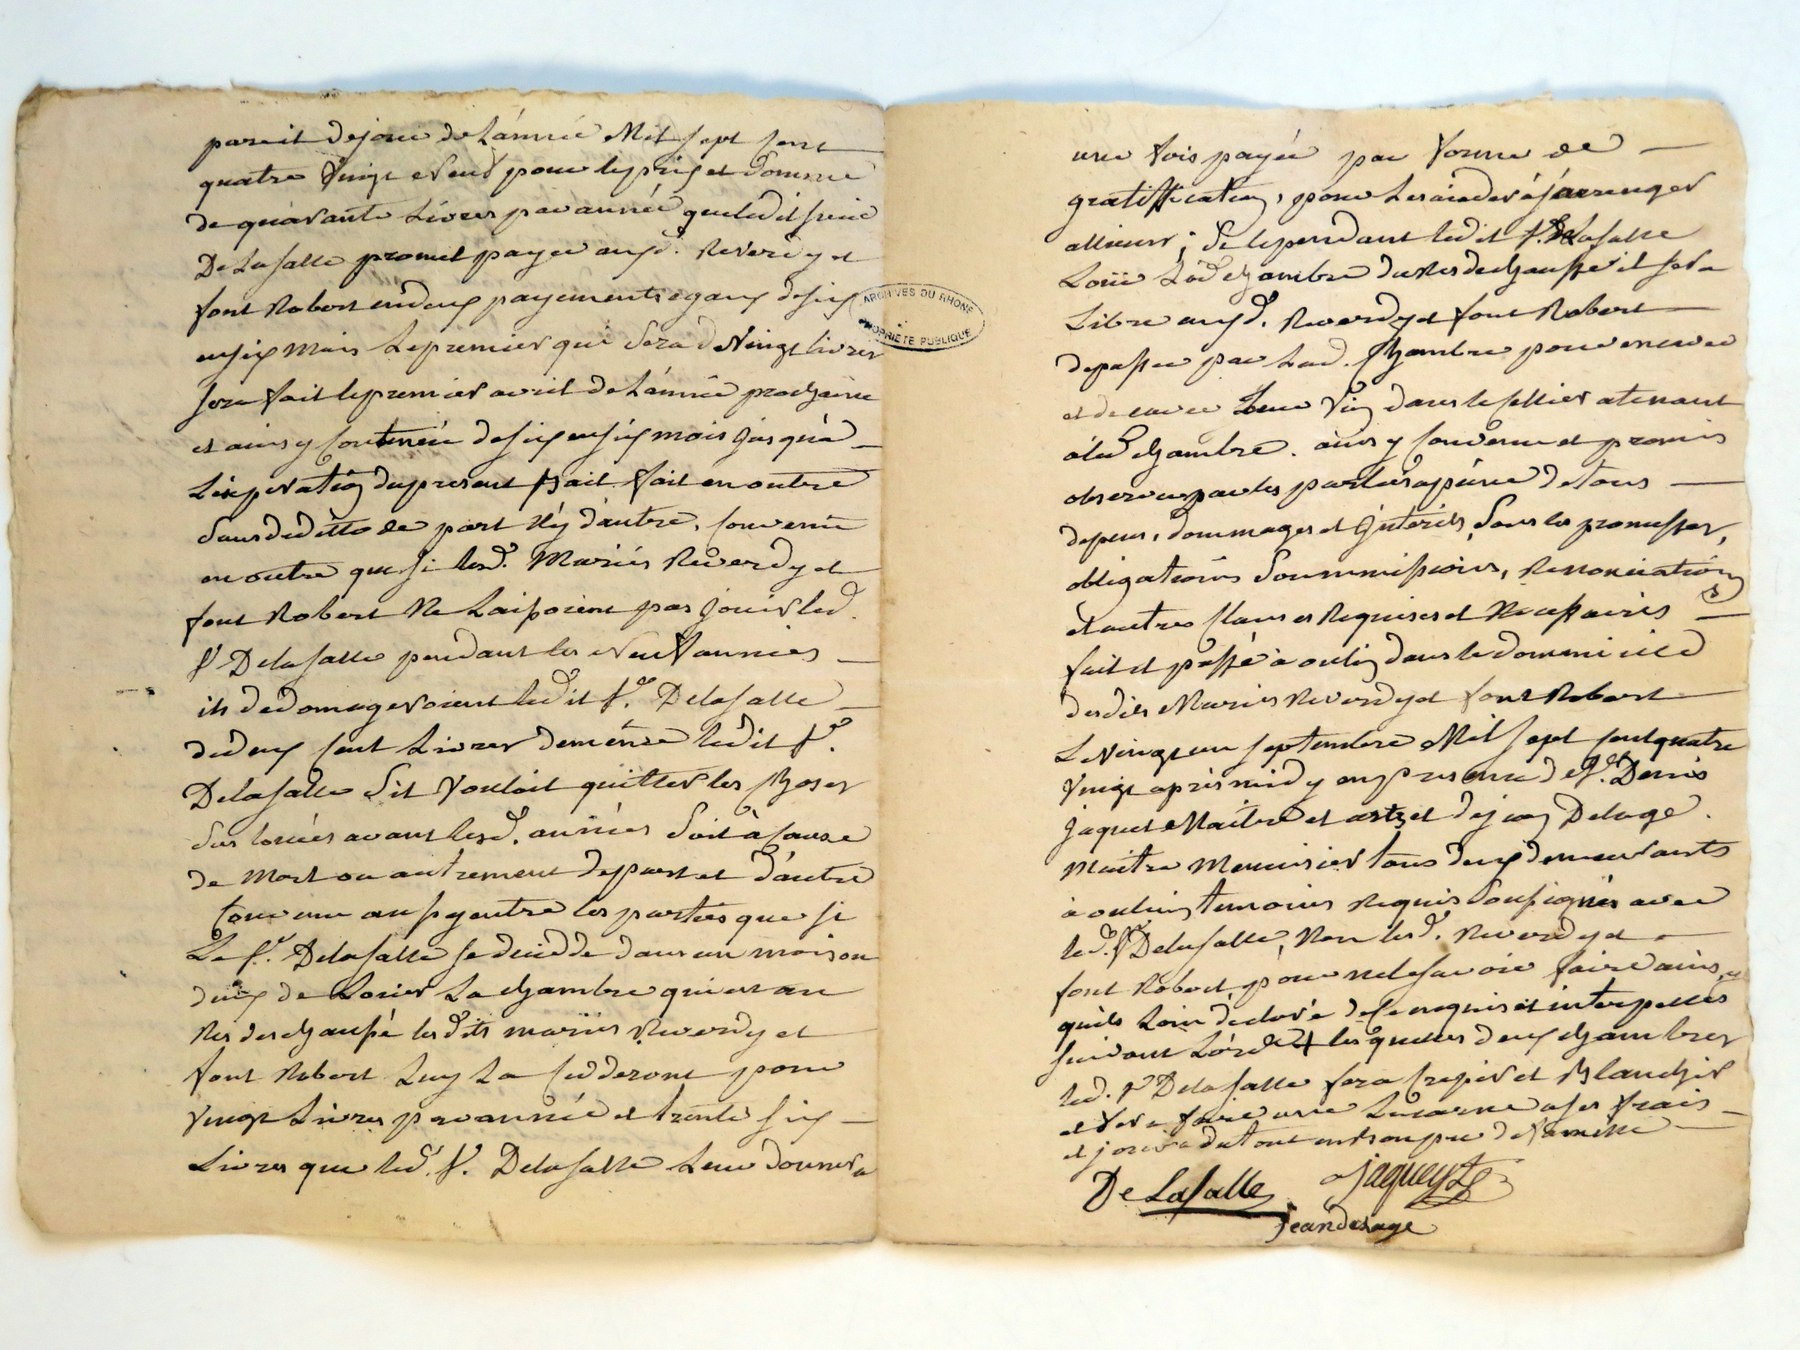 pareit dejour de L'année Mil sept sent
quatre vingt neuf pour le prix et somme
de quarante Livres par année que ledit sieur
De La salle promet payer auxd. Reverdy et
font Robert en deux payements egaux de six
en six mois Le premier qui sera de vingt livres
sera fait le premier avril de L'année prochaine
et ainsy continüer de six en six mois jusqu'à
L'expiration du present bail fait en outre
sans deditte de part n'y d'autre, convenu
en outre que si lesd. Mariés Reverdy et
font Robert Ne Laissoient pas jouir led.
sr. Delasalle pendant les neuf années
ils dedomageroient ledit sr. Delasalle
de deux sent Livres de même ledit sr.
Delasalle s'il vouloit quitter les choses
sus louées avant lesd. années soit à cause
de mort ou autrement de part et d'autre
Convenu ausy entre les parties que si
Le sr. Delasalle se decidde dans un mois ou
deux de Louer La chambre qui est au
Res de chaussé lesdits mariés Reverdy et
font Robert Luy La sedderont pour
vingt Livres par année et trente six
Livres que led. sr. Delasalle Leur donnera
une fois payée par forme de
gratiffication, pour Les aider à s'arranger
allieurs; seependant ledit sr. Delasalle
Loüe Lad. chambre du Res de chaussé il sera
Libre auxd. Reverdy et font Robert
de passer par Lad. chambre pour encaver
et decaver Leur vin dans le sellier atenant
à lad. chambre. ainsy convenu et promis
observer par les parties à peine de tous
depens, dommages et intérêts, sous les promesses,
obligations soummissions, Renonciations
et autres clauses Requises et Necessaires
fait et passé à oulin dans le dommicile
desdits Mariés Reverdy et font Robert
Le vingt un septembre Mil sept sent quatre
vingt après midy en presence de sr. Denis
Jaquet Maitre et de jean Delage.
Maitre Menuisier tous deux demeurants
à oulins temoins Requis soussignés avec
led. sr Delasalle, Non lesd. Reverdy et
font Robert pour ne le savoir faire ainsy
quils L'on déclaré de ce enquis et interpellés
suivant L'ord. + lesquelles deux chambres
led. sr Delasalle fera crepir et Blanchir
et fera faire une Lucarne a ses frais
et jouira du tout
De LaSalle Jaquet
jean delage
ARCHIVES DU RHONE
PROPRIETE PUBLIQUE